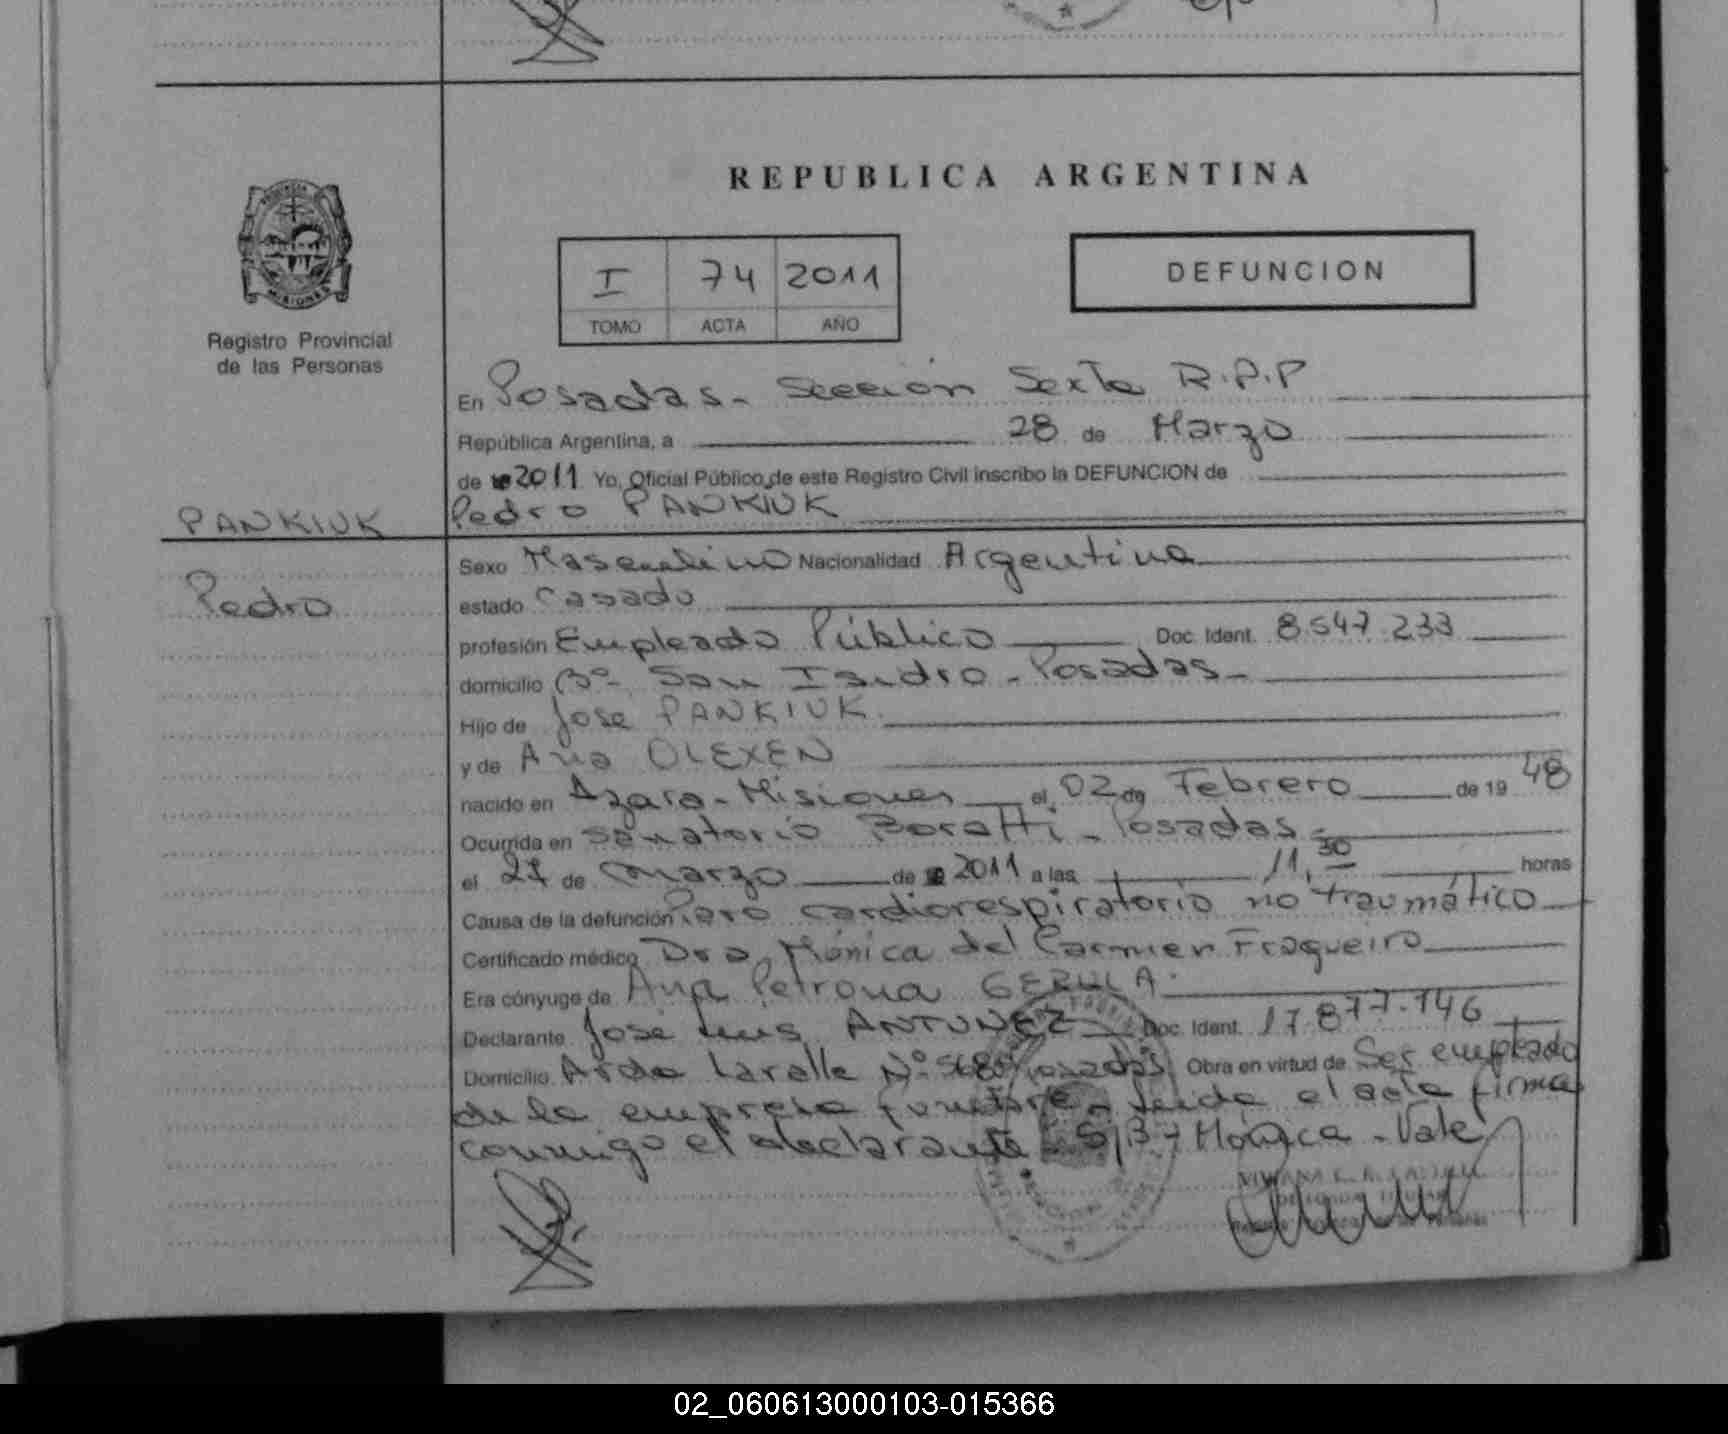 REPUBLICA ARGENTINA
PROVINCIA
MISIONES
Registro Provincial
de las Personas
I 74 2011
TOMO ACTA AÑO
DEFUNCION
En Posadas - Sección Sexta R.P.P
República Argentina, a 28 de Marzo
de 2011 Yo, Oficial Público de este Registro Civil inscribo la DEFUNCION de
PANKIUK
Pedro
Pedro PANKIUK
Sexo Masculino Nacionalidad Argentina
estado Casado
profesión Empleado Público Doc. Ident. 8.547.233
domicilio Bº- San Isidro - Posadas -
Hijo de Jose PANKIUK.
y de Ana OLEXEN
nacido en Azara - Misiones el 02 de Febrero de 19 48
Ocurrida en Sanatorio Boratti - Posadas -
el 27 de marzo de 2011 a las 11,30 horas
Causa de la defunción Paro cardiorespiratorio no traumático
Certificado médico Dra. Mónica del Carmen Fraqueiro
Era cónyuge de Ana Petrona GERULA.
Declarante José Luis ANTUNEZ Doc. Ident. 17.877.746
Domicilio Avda Lavalle Nº 5680 Posadas Obra en virtud de Ser empleado
de la empresa funebre - leida el acta firma
conmigo el declarante - S/B - Mónica - Vale
02_060613000103-015366